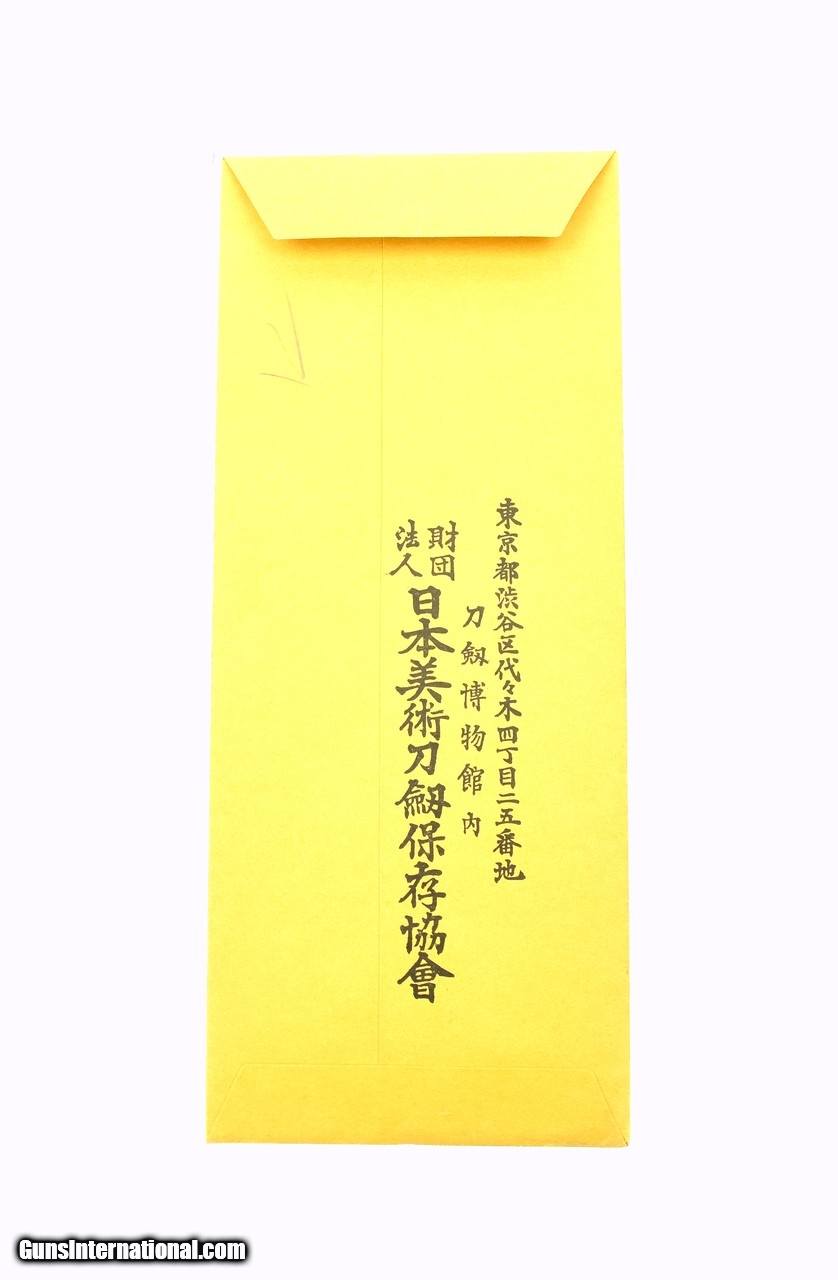 東京都渋谷区代々木四丁目二五番地
刀劔博物館内
財団法人日本美術刀劔保存協會
GunsInternational.com